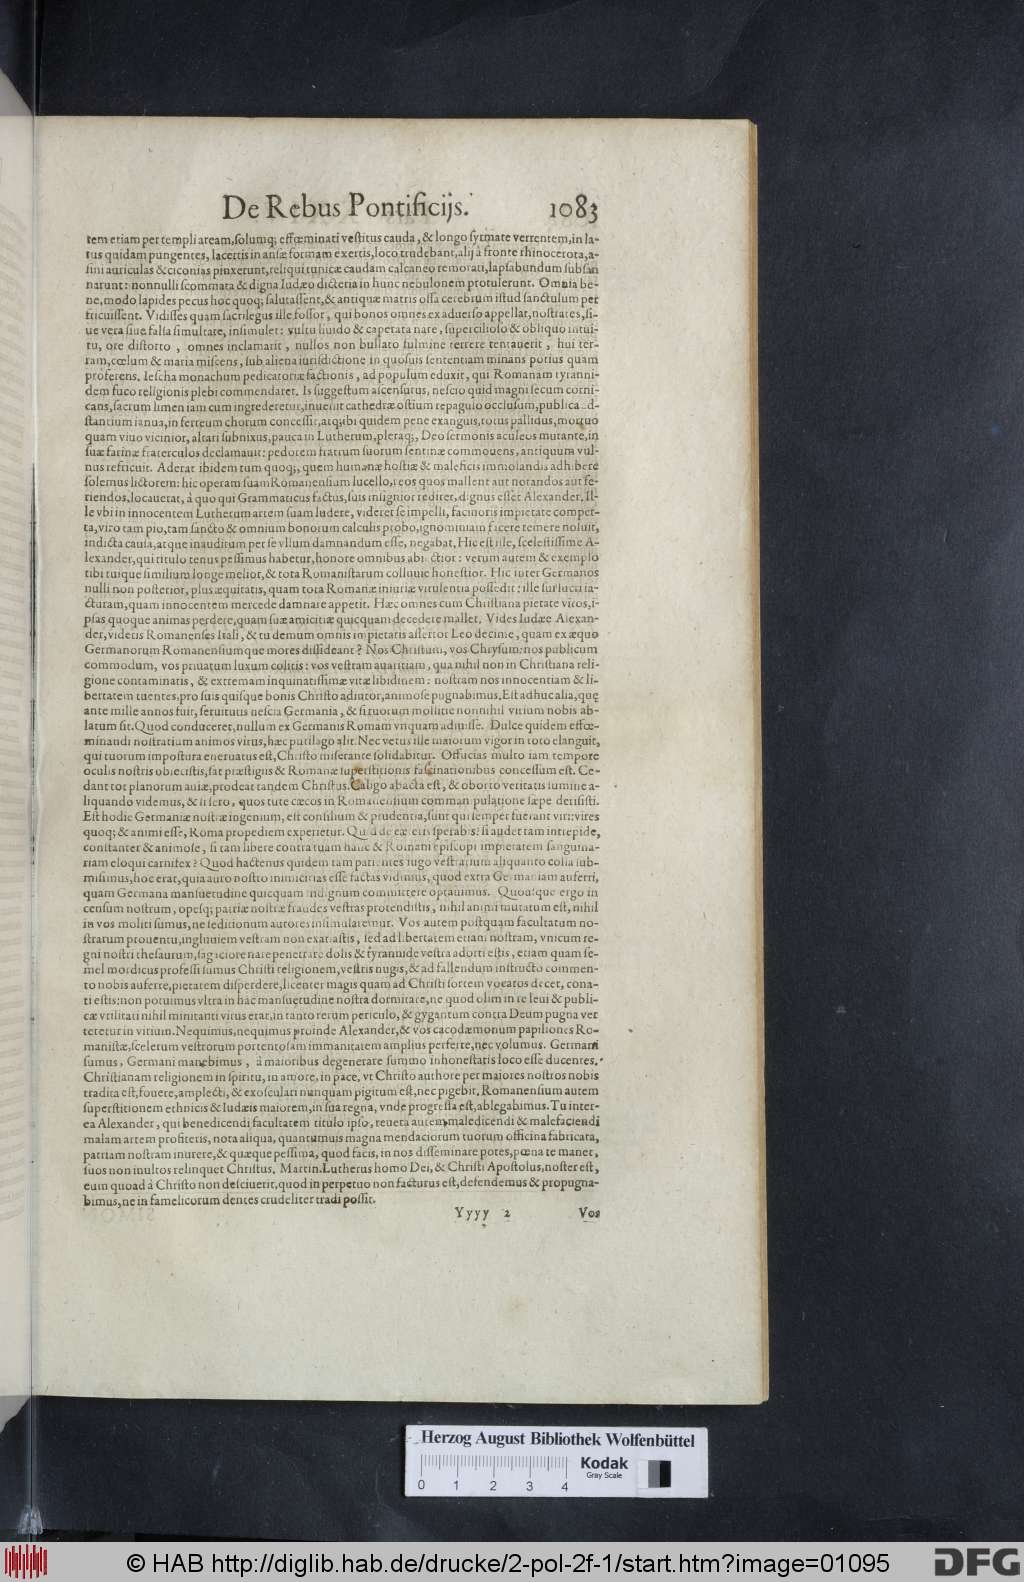 De Rebus Pontificijs. 1083
tem etiam per templi aream, solumq; effœminati vestitus cauda, & longo syrmate verrentem, in la-
tus quidam pungentes, lacertis in ansæ formam exertis, loco trudebant, alij à fronte rhinocerota, a-
sini auriculas & ciconias pinxerunt, reliqui tunicæ caudam calcaneo remorati, lapsabundum subsan
narunt: nonnulli scommata & digna Iudæo dicteria in hunc nebulonem protulerunt. Omnia be-
ne, modo lapides pecus hoc quoq; salutassent, & antiquæ matris ossa cerebrum istud sanctulum per
fricuissent. Vidisses quam sacrilegus ille fossor, qui bonos omnes ex aduerso appellat, nostrates, si-
ue vera siue falsa simultate, insimulet: vultu liuido & caperata nare, superciliolo & obliquo intui-
tu, ore distorto, omnes inclamarit, nullos non bullato fulmine terrere tentauerit, hui ter-
ram, cœlum & maria miscens, sub aliena iurisdictione in quosuis sententiam minans potius quam
proferens. Iescha monachum pedicatoriæ factionis, ad populum eduxit, qui Romanam tyranni-
dem fuco religionis plebi commendaret. Is suggestum ascensurus, nescio quid magni secum corni-
cans, sacrum limen iam cum ingrederetur, inuenit cathedræ ostium repagulo occlusum, publica ad-
stantium ianua, in ferreum chorum concessit, atq; ibi quidem pene exanguis, totus pallidus, mortuo
quam viuo vicinior, altari subnixus, pauca in Lutherum, pleraq; Deo sermonis aculeos mutante, in
suæ farinæ fraterculos declamauit: pedorem fratrum suorum sentinæ commouens, antiquum vul-
nus refricuit. Aderat ibidem tum quoq; quem humanæ hostiæ & maleficis immolandis adhibere
solemus lictorem: hic operam suam Romanensium lucello, reos quos mallent aut notandos aut fe-
riendos, locauerat, à quo qui Grammaticus factus, suis insignior rediret, dignus esset Alexander. Il-
le vbi in innocentem Lutherum artem suam ludere, videret se impelli, facinoris impietate comper-
ta, viro tam pio, tam sancto & omnium bonorum calculis probo, ignominiam facere temere noluit,
indicta causa, atque inauditum per se vllum damnandum esse, negabat. Hic est ille, scelestissime A-
lexander, qui titulo tenus pessimus habetur, honore omnibus abiectior: verum autem & exemplo
tibi tuique similium longe melior, & tota Romanistarum colluuie honestior. Hic inter Germanos
nulli non posterior, plus æquitatis, quam tota Romanæ iniuriæ virulentia possedit: ille sui lucri ia-
cturam, quam innocentem mercede damnare appetit. Hæc omnes cum Christiana pietate viros, i-
psas quoque animas perdere, quam suæ amicitiæ quicquam decedere mallet. Vides Iudæe Alexan-
der, videtis Romanenses Itali, & tu demum omnis impietatis assertor Leo decime, quam ex æquo
Germanorum Romanensiumque mores dissideant? Nos Christum, vos Chrysum: nos publicum
commodum, vos priuatum luxum colitis: vos vestram auaritiam, qua nihil non in Christiana reli-
gione contaminatis, & extremam inquinatissimæ vitæ libidinem: nostram nos innocentiam & li-
bertatem tuentes, pro suis quisque bonis Christo adiutor, animose pugnabimus. Est adhuc alia, quę
ante mille annos fuit, seruitutis nescia Germania, & si tuorum mollitie nonnihil vitium nobis ab-
latum sit. Quod conduceret, nullum ex Germanis Romam vnquam admisse. Dulce quidem effœ-
minandi nostratium animos virus, hæc putilago alit. Nec vetus ille maiorum vigor in toto elanguit,
qui tuorum impostura eneruatus est, Christo miserante solidabitur. Offucias multo iam tempore
oculis nostris obiecistis, sat præstigiis & Romanæ superstitionis fascinationibus concessum est. Ce-
dant tot planorum auiæ, prodeat tandem Christus. Caligo abacta est, & oborto veritatis lumine a-
liquando videmus, & si sero, quos tute cæcos in Romanensium commanipulatione sæpe derisisti.
Est hodie Germaniæ nostræ ingenium, est consilium & prudentia, sunt qui semper fuerant viri: vires
quoq; & animi esse, Roma propediem experietur. Quid de cæteris sperabis: si audet tam intrepide,
constanter & animose, si tam libere contra tuam hanc & Romani episcopi impietatem sanguina-
riam eloqui carnifex? Quod hactenus quidem tam patientes iugo vestratium aliquanto colla sub-
misimus, hoc erat, quia auro nostro inimicitias esse factas vidimus, quod extra Germaniam auferri,
quam Germana mansuetudine quicquam indignum committere optauimus. Quousque ergo in
censum nostrum, opesq; patriæ nostræ fraudes vestras protendistis, nihil animi mutatum est, nihil
in vos moliti sumus, ne seditionum autores insimularemur. Vos autem postquam facultatum no-
strarum prouentu, ingluuiem vestram non exatiastis, sed ad libertatem etiam nostram, vnicum re-
gni nostri thesaurum, sagaciore nare penetrare dolis & tyrannide vestra adorti estis, etiam quam se-
mel mordicus professi sumus Christi religionem, vestris nugis, & ad fallendum instructo commen-
to nobis auferre, pietatem disperdere, licenter magis quam ad Christi sortem vocatos decet, cona-
ti estis: non potuimus vltra in hac mansuetudine nostra dormitare, ne quod olim in re leui & publi-
cæ vtilitati nihil minitanti virus erat, in tanto rerum periculo, & gygantum contra Deum pugna ver
teretur in vitium. Nequimus, nequimus proinde Alexander, & vos cacodæmonum papiliones Ro-
manistæ, scelerum vestrorum portentosam immanitatem amplius perferre, nec volumus. Germani
sumus, Germani manebimus, à maioribus degenerare summo inhonestatis loco esse ducentes.
Christianam religionem in spiritu, in amore, in pace, vt Christo authore per maiores nostros nobis
tradita est, fouere, amplecti, & exosculari nunquam pigitum est, nec pigebit. Romanensium autem
superstitionem ethnicis & Iudæis maiorem, in sua regna, vnde progressa est, ablegabimus. Tu inter-
ea Alexander, qui benedicendi facultatem titulo ipso, reuera autem maledicendi & malefaciendi
malam artem profiteris, nota aliqua, quantumuis magna mendaciorum tuorum officina fabricata,
patriam nostram inurere, & quæque pessima, quod facis, in nos disseminare potes, pœna te manet,
suos non inultos relinquet Christus. Martin. Lutherus homo Dei, & Christi Apostolus, noster est,
eum quoad à Christo non desciuerit, quod in perpetuo non facturus est, defendemus & propugna-
bimus, ne in famelicorum dentes crudeliter tradi possit.
Yyyy 2 Vos
Herzog August Bibliothek Wolfenbüttel
Kodak
Gray Scale
0 1 2 3 4
© HAB http://diglib.hab.de/drucke/2-pol-2f-1/start.htm?image=01095
DFG